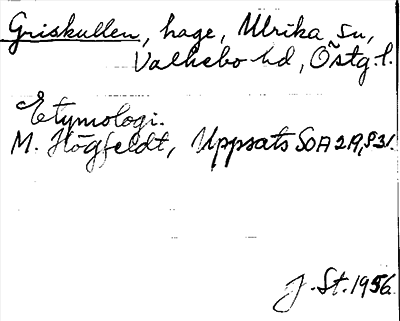 Griskullen, hage, Ulrika sn,
Valkebo hd, Östg. l.
Etymologi.
M. Högfeldt, Uppsats SOA 219, s 31.
J. St. 1956.